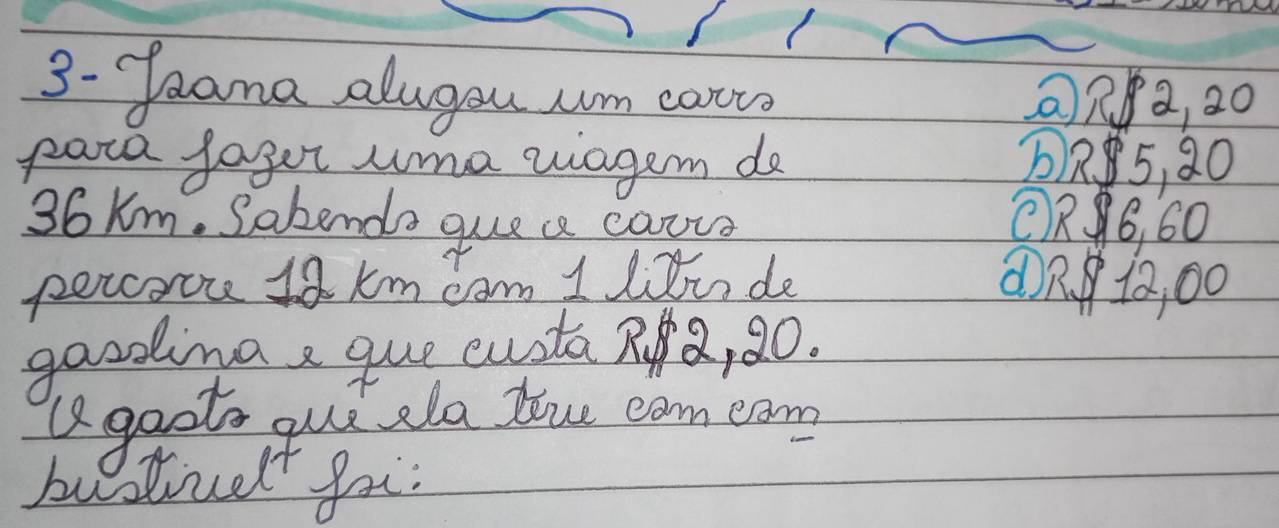 3- Joana alugou um carro
para fazer uma viagem de
36 Km. Sabendo que o carro
percorre 12 Km com 1 litro de
gasolina e que custa R$2,20.
O gasto que ela teve com com
bustível foi:
a) R$ 2,20
b) R$ 5,20
c) R$ 6,60
d) R$ 12,00